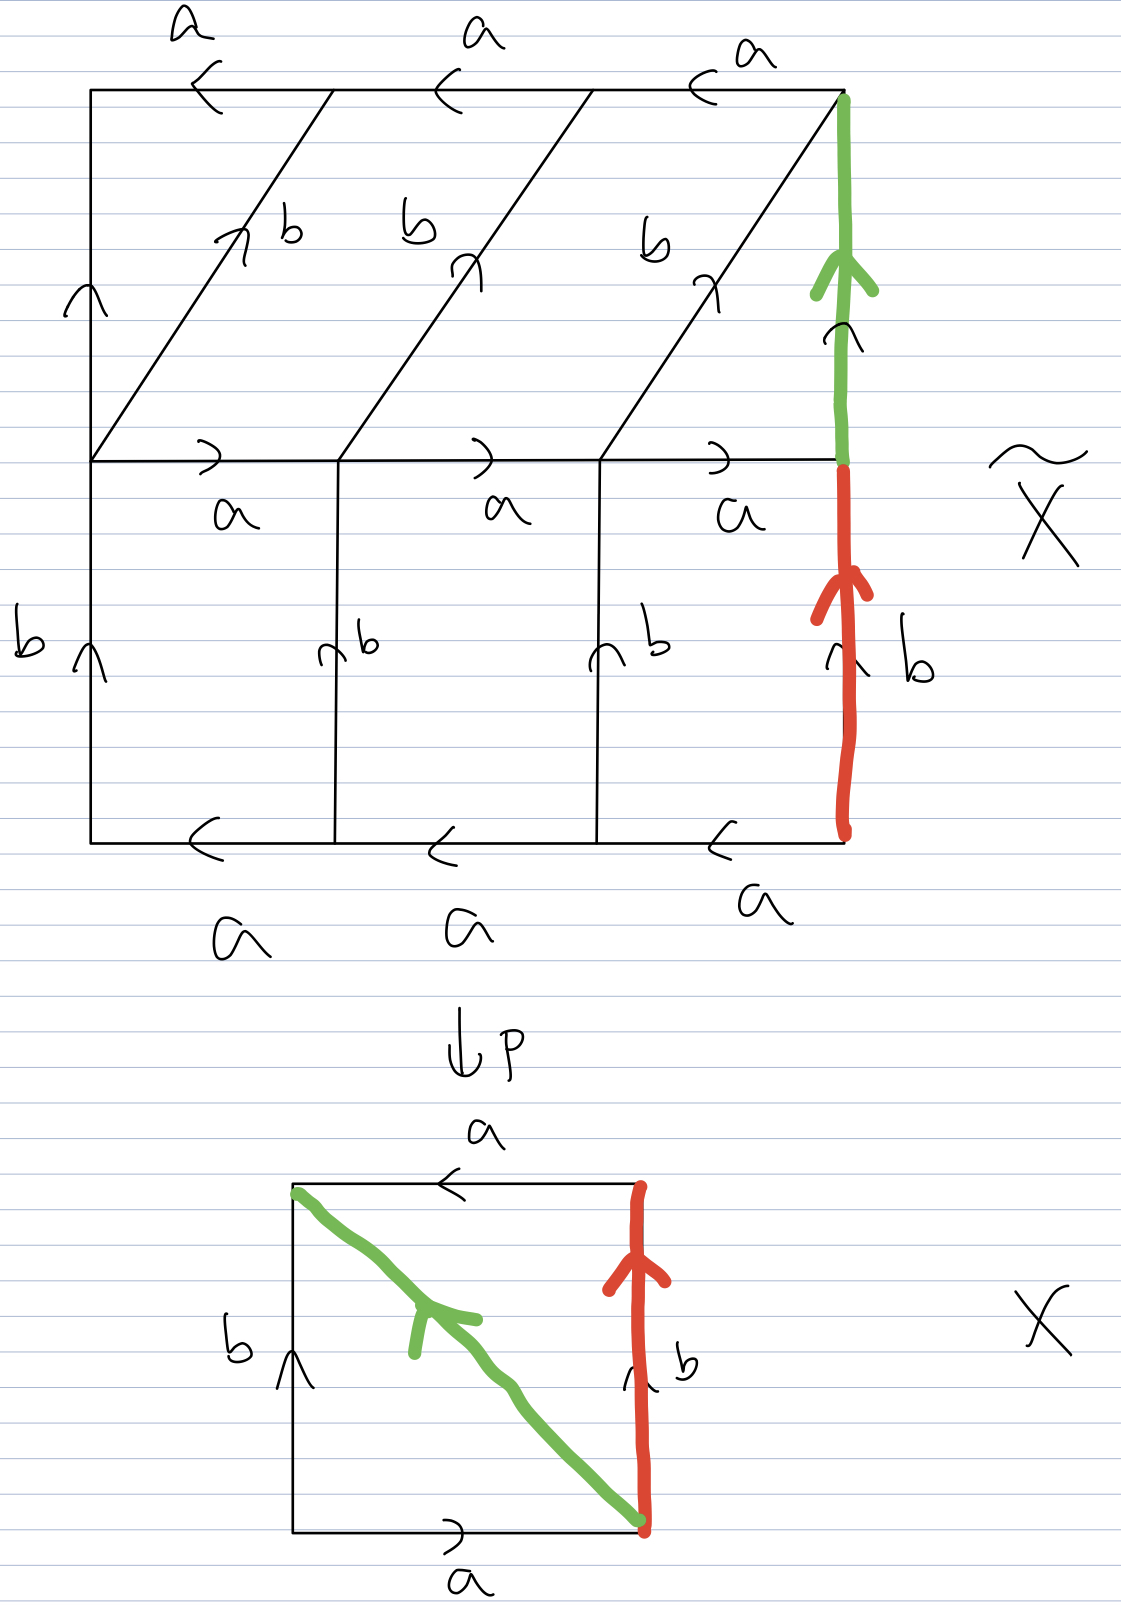 a a a
b b b
a a a
X̃
b b b b
a a a
↓ p
a
b b
X
a